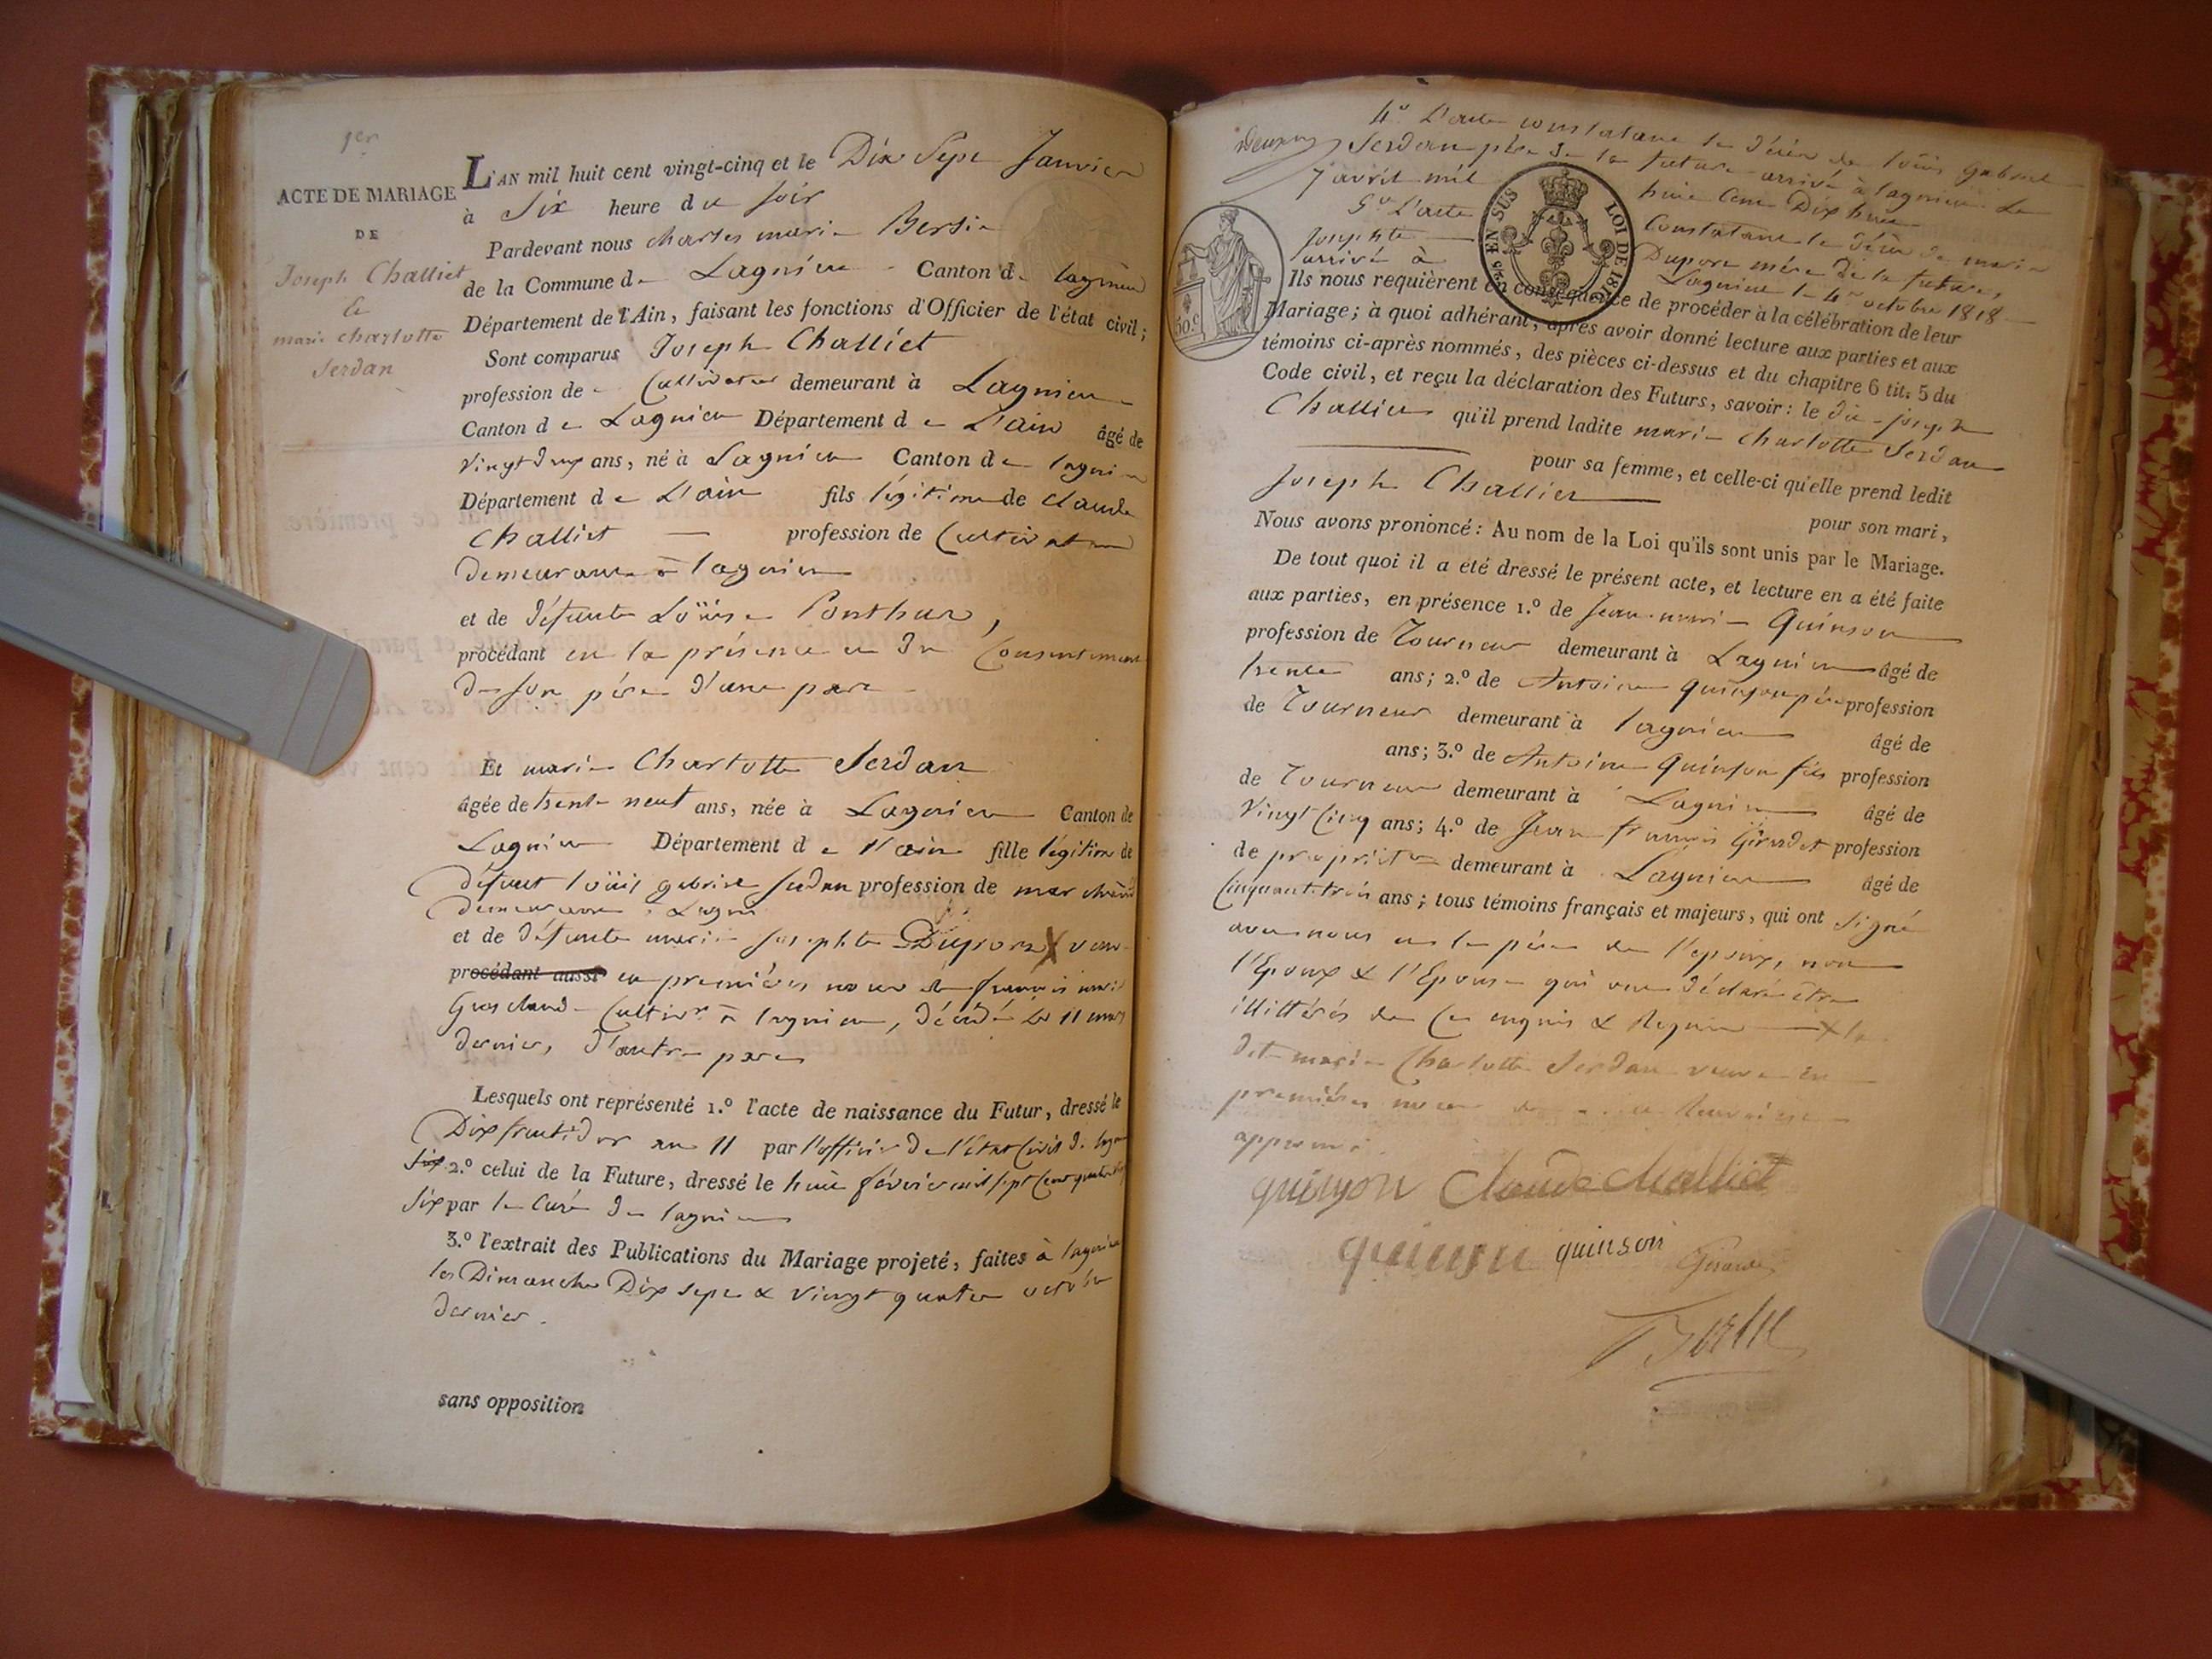 1er
ACTE DE MARIAGE
DE
Joseph Challiet
&
marie charlotte
Serdan
L'AN mil huit cent vingt-cinq et le Dix Sept Janvier
à Six heure du soir
Pardevant nous charles marie
de la Commune de Lagnieu Canton de lagnieu
Département de l'Ain, faisant les fonctions d'Officier de l'état civil;
Sont comparus Joseph Challiet
profession de Cultivateur demeurant à Lagnieu
Canton de Lagnieu Département de L'ain âgé de
vingt deux ans, né à Lagnieu Canton de lagnieu
Département de L'ain fils légitime de claude
Challiet profession de Cultivateur
demeurant à lagnieu
et de défunte Loüise Ponthus,
procédant en la présence et du Consentement
de son père d'une part
Et marie Charlotte Serdan
âgée de trente neuf ans, née à Lagnieu Canton de
Lagnieu Département de l'ain fille légitime de
défunt loüis gabriel serdan profession de marchand
demeurant à Lagnieu
et de défunte marie josephte Duport X veuve
procédant aussi en premières noces de françois marie
cultivr à lagnieu, décédé le 11 mars
dernier, d'autre part
Lesquels ont représenté 1.º l'acte de naissance du Futur, dressé le
Dix fructidor an 11 par l'officier de l'état Civil de lagnieu
six 2.º celui de la Future, dressé le huit février mil sept Cent quatre vingt
six par le Curé de lagnieu
3.º l'extrait des Publications du Mariage projeté, faites à lagnieu
les Dimanches Dix sept & vingt quatre octobre
dernier.
sans opposition
4º L'acte constatant le décès de loüis gabriel
Serdan père de la future arrivé à lagnieu le
7 avril mil huit Cent Dix huit
5º L'acte Constatant le décès de marie
josephte Duport mère de la future,
arrivé à Lagnieu le 4 octobre 1818
50.c
⅕ EN SUS
LOI DE 1816
Ils nous requièrent en conséquence de procéder à la célébration de leur
Mariage; à quoi adhérant, après avoir donné lecture aux parties et aux
témoins ci-après nommés, des pièces ci-dessus et du chapitre 6 tit. 5 du
Code civil, et reçu la déclaration des Futurs, savoir: le dit joseph
Challiet qu'il prend ladite marie charlotte Serdan
pour sa femme, et celle-ci qu'elle prend ledit
Joseph Challiet pour son mari,
Nous avons prononcé: Au nom de la Loi qu'ils sont unis par le Mariage.
De tout quoi il a été dressé le présent acte, et lecture en a été faite
aux parties, en présence 1.º de Jean-marie Quinson
profession de Tourneur demeurant à Lagnieu âgé de
trente ans; 2.º de Antoine quinson père profession
de Tourneur demeurant à lagnieu âgé de
ans; 3.º de Antoine Quinson fils profession
de Tourneur demeurant à Lagnieu âgé de
vingt Cinq ans; 4.º de Jean françois Girardet profession
de propriétaire demeurant à Lagnieu âgé de
Cinquante trois ans; tous témoins français et majeurs, qui ont signé
avec nous et le père de l'epoux, non
l'Epoux & l'Epouse qui ont déclaré être
illittérés de Ce enquis & Requis X la
dite marie Charlotte Serdan veuve en
premières noces
approuvé.
quinson Claude challiet
quinson quinson